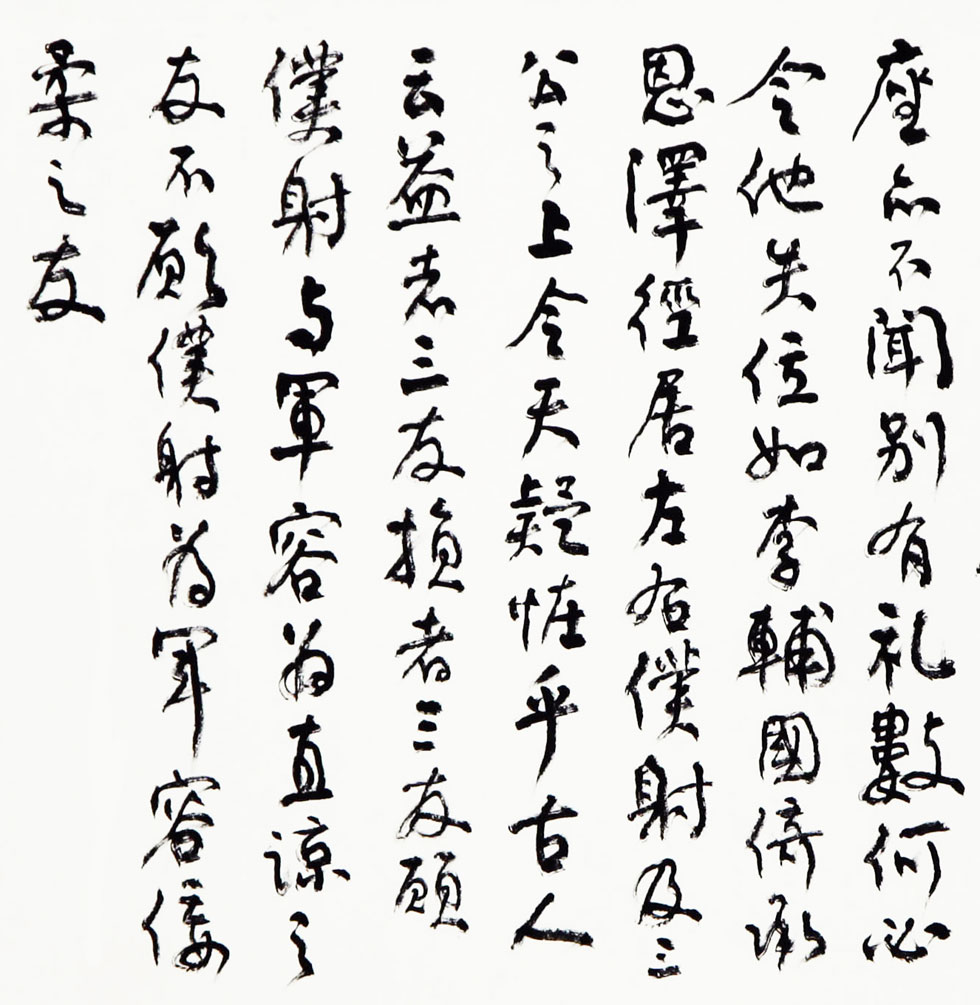 座亦不聞别有礼數何必
令他失位如李輔國倚承
恩澤徑居左右僕射及三
公之上令天疑恠乎古人
云益者三友損者三友願
僕射与軍容為直諒之
友不願僕射為軍容佞
柔之友